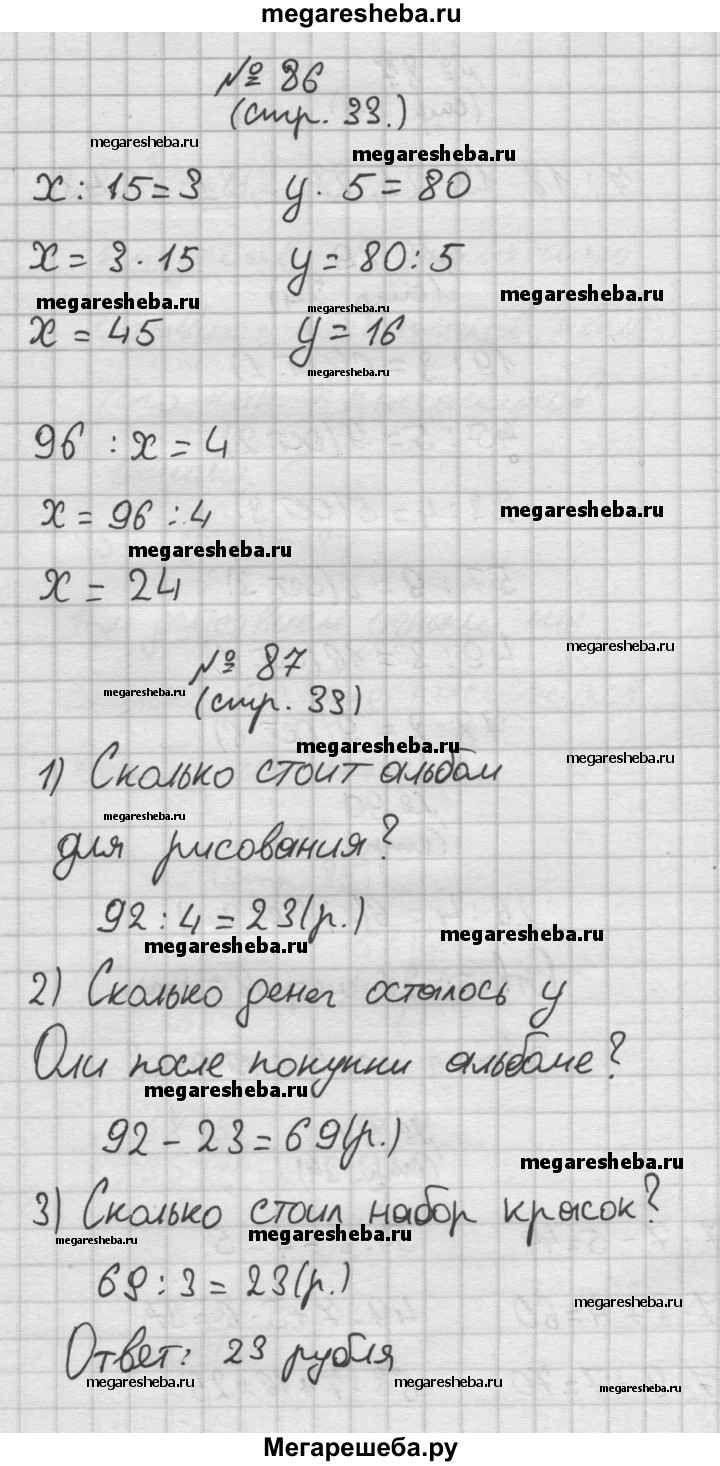 megaresheba.ru
№ 86
(стр. 33.)
megaresheba.ru
megaresheba.ru
x : 15 = 3 y · 5 = 80
x = 3 · 15 y = 80 : 5
megaresheba.ru
megaresheba.ru
megaresheba.ru
x = 45 y = 16
megaresheba.ru
96 : x = 4
x = 96 : 4
megaresheba.ru
megaresheba.ru
x = 24
№ 87
megaresheba.ru
megaresheba.ru
(стр. 33)
megaresheba.ru
megaresheba.ru
1) Сколько стоит альбом
megaresheba.ru
для рисования?
92 : 4 = 23(р.)
megaresheba.ru
megaresheba.ru
2) Сколько денег осталось у
Оли после покупки альбома?
megaresheba.ru
92 - 23 = 69(р.)
megaresheba.ru
3) Сколько стоил набор красок?
megaresheba.ru
megaresheba.ru
69 : 3 = 23(р.)
megaresheba.ru
Ответ: 23 рубля
megaresheba.ru
megaresheba.ru
megaresheba.ru
Мегарешеба.ру